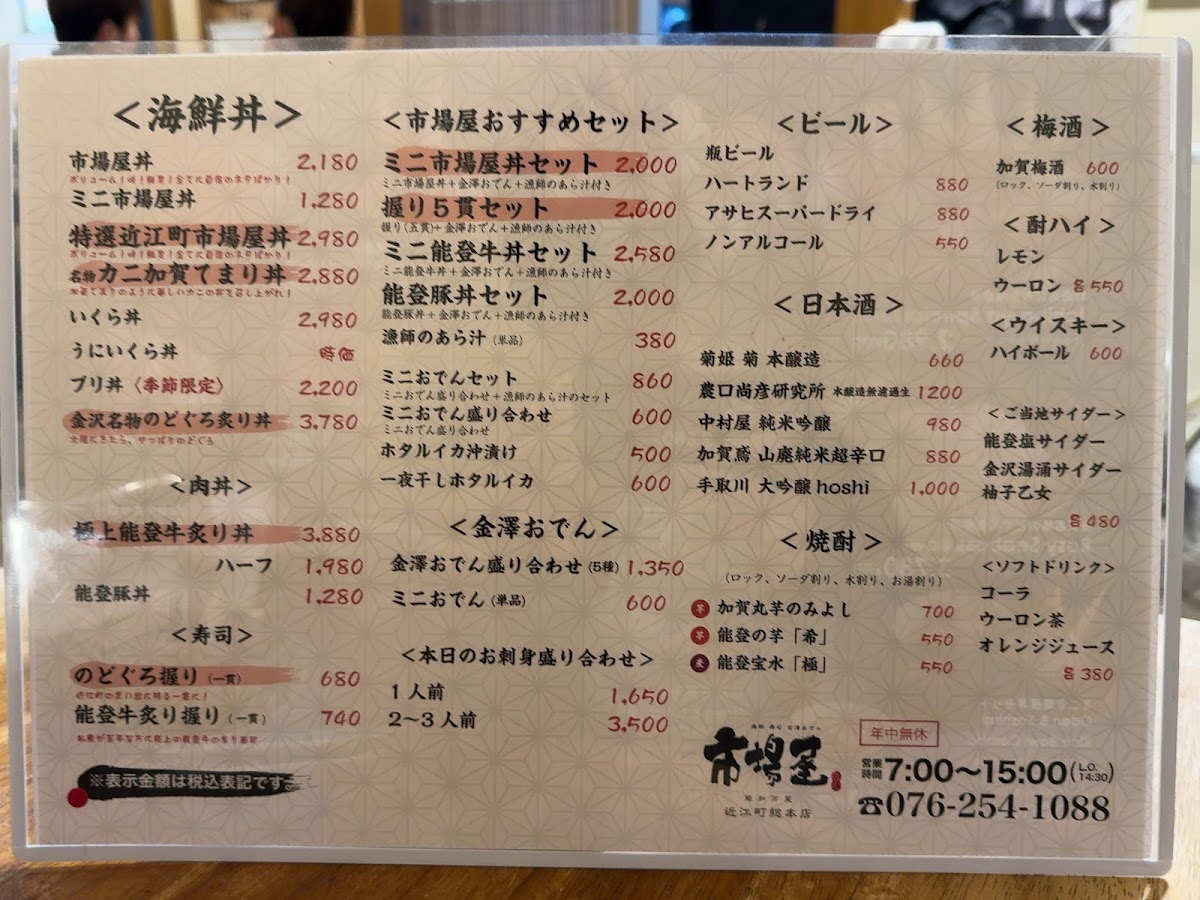 ＜海鮮丼＞
市場屋丼 2,180
ボリューム!味!鮮度!全てに自信のネタばかり!
ミニ市場屋丼 1,280
特選近江町市場屋丼 2,980
ボリューム!味!鮮度!全てに自信のネタばかり!
名物カニ加賀てまり丼 2,880
加賀てまりのように美しいカニの丼を召し上がれ!
いくら丼 2,980
うにいくら丼 時価
ブリ丼〈季節限定〉 2,200
金沢名物のどぐろ炙り丼 3,780
北陸にきたら、やっぱりのどぐろ
＜肉丼＞
極上能登牛炙り丼 3,880
ハーフ 1,980
能登豚丼 1,280
＜寿司＞
のどぐろ握り(一貫) 680
能登牛炙り握り(一貫) 740
※表示金額は税込表記です。
＜市場屋おすすめセット＞
ミニ市場屋丼セット 2,000
ミニ市場屋丼+金澤おでん+漁師のあら汁付き
握り5貫セット 2,000
握り(五貫)+金澤おでん+漁師のあら汁付き
ミニ能登牛丼セット 2,580
ミニ能登牛丼+金澤おでん+漁師のあら汁付き
能登豚丼セット 2,000
能登豚丼+金澤おでん+漁師のあら汁付き
漁師のあら汁(単品) 380
ミニおでんセット 860
ミニおでん盛り合わせ+漁師のあら汁のセット
ミニおでん盛り合わせ 600
ミニおでん盛り合わせ
ホタルイカ沖漬け 500
一夜干しホタルイカ 600
＜金澤おでん＞
金澤おでん盛り合わせ(5種) 1,350
ミニおでん(単品) 600
＜本日のお刺身盛り合わせ＞
1人前 1,650
2〜3人前 3,500
＜ビール＞
瓶ビール
ハートランド 880
アサヒスーパードライ 880
ノンアルコール 550
＜日本酒＞
菊姫 菊 本醸造 660
農口尚彦研究所 本醸造無濾過生 1200
中村屋 純米吟醸 980
加賀鳶 山廃純米超辛口 880
手取川 大吟醸hoshi 1,000
＜焼酎＞
(ロック、ソーダ割り、水割り、お湯割り)
芋 加賀丸芋のみよし 700
芋 能登の芋「希」 550
麦 能登宝水「極」 550
＜梅酒＞
加賀梅酒 600
(ロック、ソーダ割り、水割り)
＜酎ハイ＞
レモン
ウーロン 各550
＜ウイスキー＞
ハイボール 600
＜ご当地サイダー＞
能登塩サイダー
金沢湯涌サイダー
柚子乙女
各480
＜ソフトドリンク＞
コーラ
ウーロン茶
オレンジジュース
各380
海鮮 寿司 金澤おでん
市場屋
近江町総本店
年中無休
営業時間 7:00〜15:00(L.O. 14:30)
☎076-254-1088